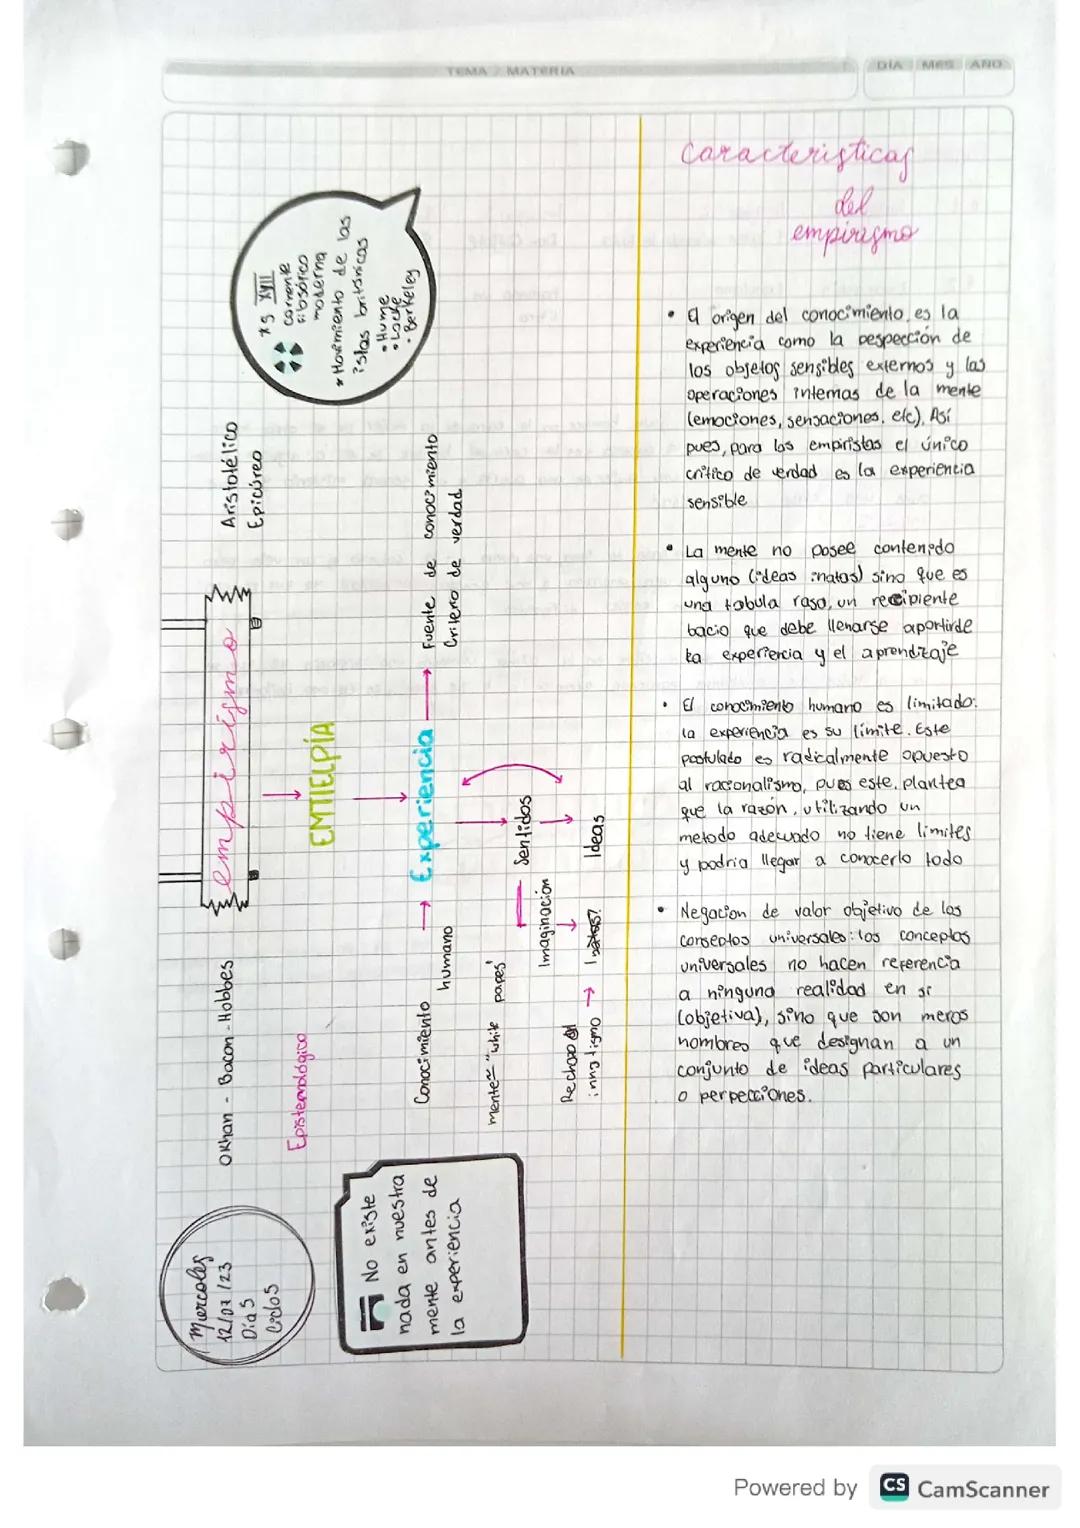 TEMA / MATERIA
DIA MES AÑO
Miercoles
12/07/23
Dia 5
Ciclos
Okhan - Bacon - Hobbes
empirismo
Aristotélico
Epicúreo
* S XVII
corriente
filosófico
moderna
* Movimiento de las
islas británicas
• Hume
• Locke
• Berkeley
Epistemológico
EMTIELPÍA
No existe
nada en nuestra
mente antes de
la experiencia
Conocimiento
humano
→ Experiencia →
Fuente de conocimiento
Criterio de verdad
mente = "white
papes"
Sentidos
Imaginación
Ideas
Rechazo al
innatismo →
Innatas?
Caracteristicas
del
empirismo
• El origen del conocimiento es la
experiencia como la pespección de
los objetos sensibles externos y las
operaciones internas de la mente
(emociones, sensaciones, etc). Así
pues, para los empiristas el único
crítico de verdad es la experiencia
sensible
• La mente no posee contenido
alguno (ideas inatas) sino que es
una tabula rasa, un recipiente
bacio que debe llenarse apartirde
la experiercia y el aprendizaje
• El conocimiento humano es limitado:
la experiencia es su límite. Este
postulado es radicalmente opuesto
al racionalismo, pues este plantea
que la razón, utilizando un
metodo adecuado no tiene limites
y podria llegar a conocerlo todo
• Negacion de valor objetivo de los
conseptos universales: los conceptos
universales no hacen referencia
a ninguna realidad en si
(objetiva), sino que son meros
nombres que designan a un
conjunto de ideas particulares
o perpecciones.
Powered by CS CamScanner